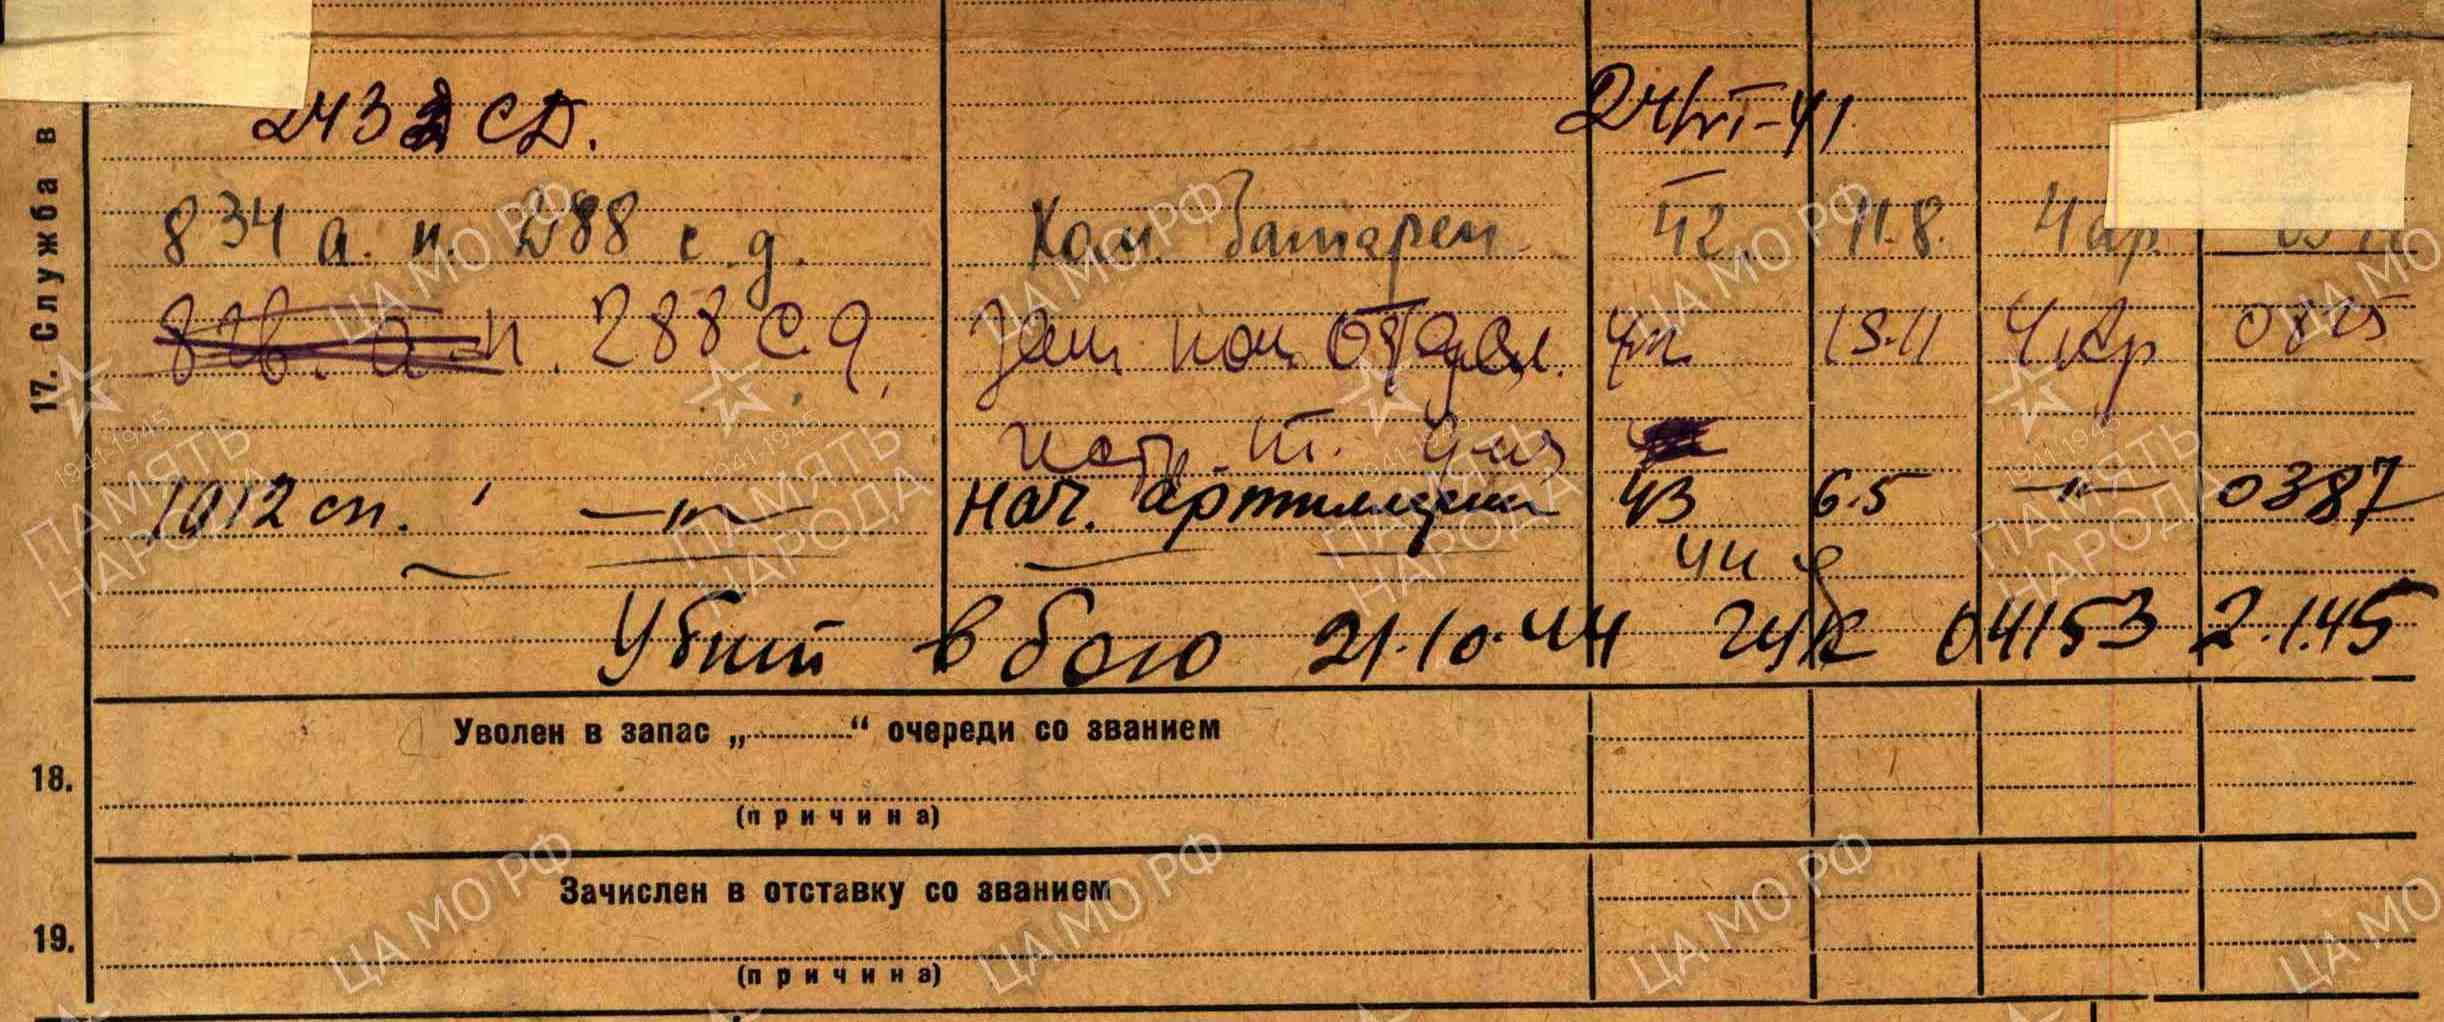 17. Служба в
243 СД. 24/VI-41
834 а. п. 288 с. д. Ком. Батареи 42 11.8. 4 ар.
п. 288 с. д. Зам ком 15.11 4 ар 0825
1012 сп. —"— нач. артиллерии 43 6.5 —"— 0387
44
Убит в бою 21.10.44 ГУК 04153 2.1.45
18. Уволен в запас „ “ очереди со званием
(причина)
19. Зачислен в отставку со званием
(причина)
ЦА МО РФ
1941-1945
ПАМЯТЬ НАРОДА